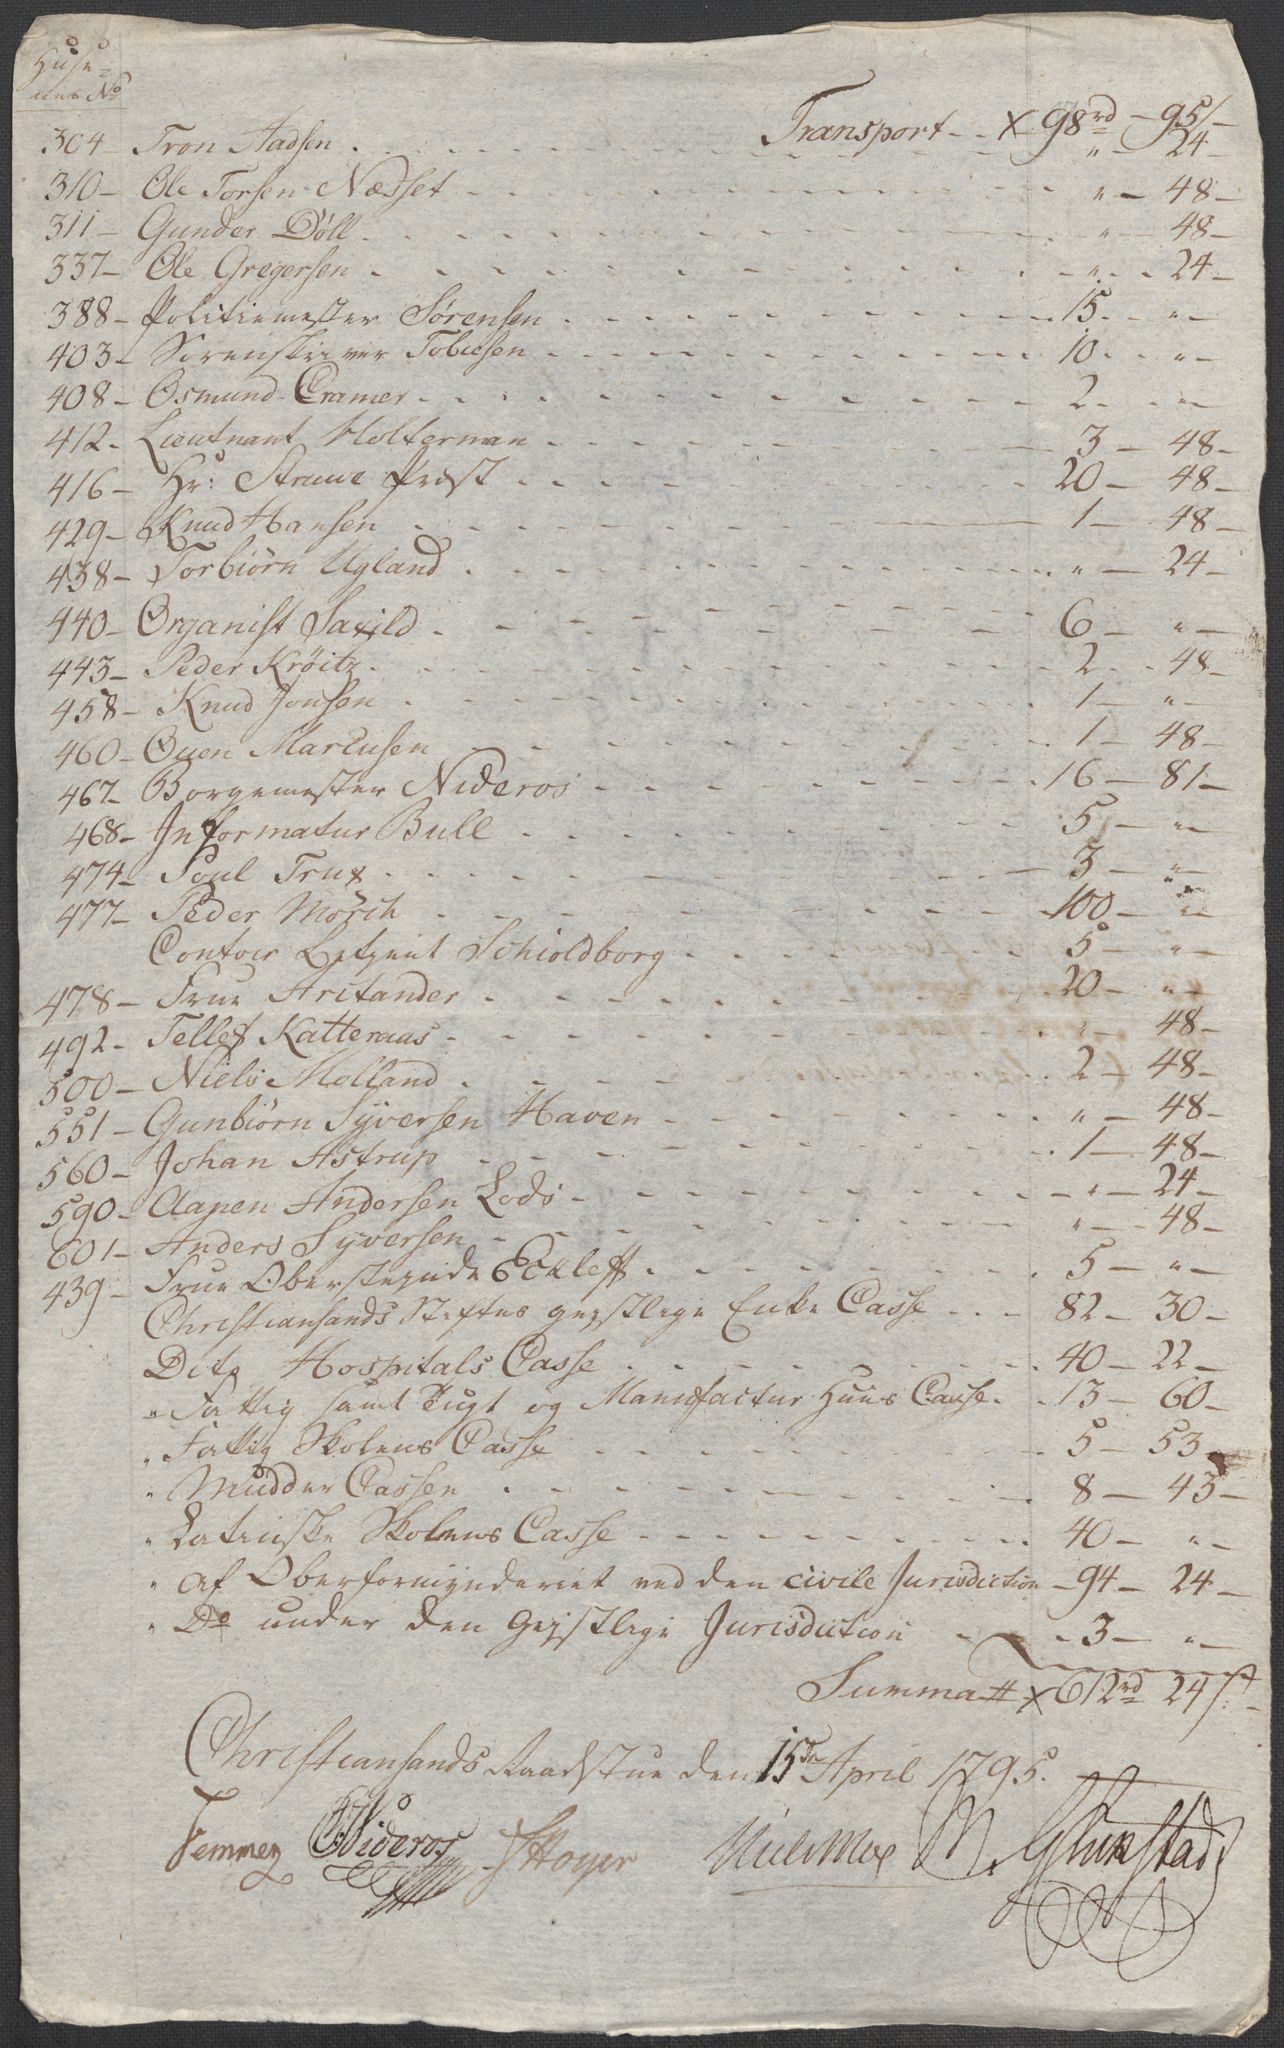 Huse=
nes No
Transport - - X 98 rd - 95/-
304 - Tron Aadsen . . . " - 24 -
310 - Ole Torsen Næsset - - - " - 48 -
311 - Gunder Döll - - - " - 48 -
337 - Ole Gregersen - - - " - 24 -
388 - Politiemester Sørensen - - - 15 - " -
403 - Sorenskriver Tobiesen - - - 10 - " -
408 - Osmund Cramer - - - 2 - " -
412 - Lieutnant Holterman - - - 3 - 48 -
416 - Hr: Struwe Præst - - - 20 - 48 -
429 - Knud Hansen - - - 1 - 48 -
438 - Torbiörn Ugland - - - " - 24 -
440 - Organist Saxild - - - 6 - " -
443 - Peder Kröitz - - - 2 - 48 -
458 - Knud Jonsen - - - 1 - " -
460 - Ouen Marcusen - - - 1 - 48 -
467 - Borgemester Nideros - - - 16 - 81 -
468 - Informatur Bull - - - 5 - " -
474 - Poul Trux - - - 3 - " -
477 - Peder Mörch - - - 100 - " -
Contoir Betient Schioldborg - - - 5 - " -
478 - Frue Arctander - - - 20 - " -
492 - Tellef Katteraas - - - " - 48 -
500 - Niels Molland - - - 2 - 48 -
551 - Gunbiörn Syversen Haven - - - " - 48 -
560 - Johan Astrup - - - 1 - 48 -
590 - Aanen Andersen Lods - - - " - 24 -
601 - Anders Syversen - - - " - 48 -
439 - Frue Oberstinde Eckleff - - - 5 - " -
Christiansands Stiftes geystlige Enke Casse - - - 82 - 30 -
Dito Hospitals Casse - - - 40 - 22 -
" Fattig samt Tugt og Manufactur Huus Casse - - 13 - 60 -
" Fattig Skolens Casse - - - 5 - 53 -
" Mudder Cassen - - - 8 - 43 -
" Latinske Skolens Casse - - - 40 - " -
" af Oberformynderiet ved den civile Jurisdiction - 94 - 24 -
" Do under den Geystlige Jurisdiction - - - 3 - " -
Summa X 612 rd 24 s
Christiansands Raadstue den 15de April 1795.
Femmez Nideros Høyer M. Glükstad